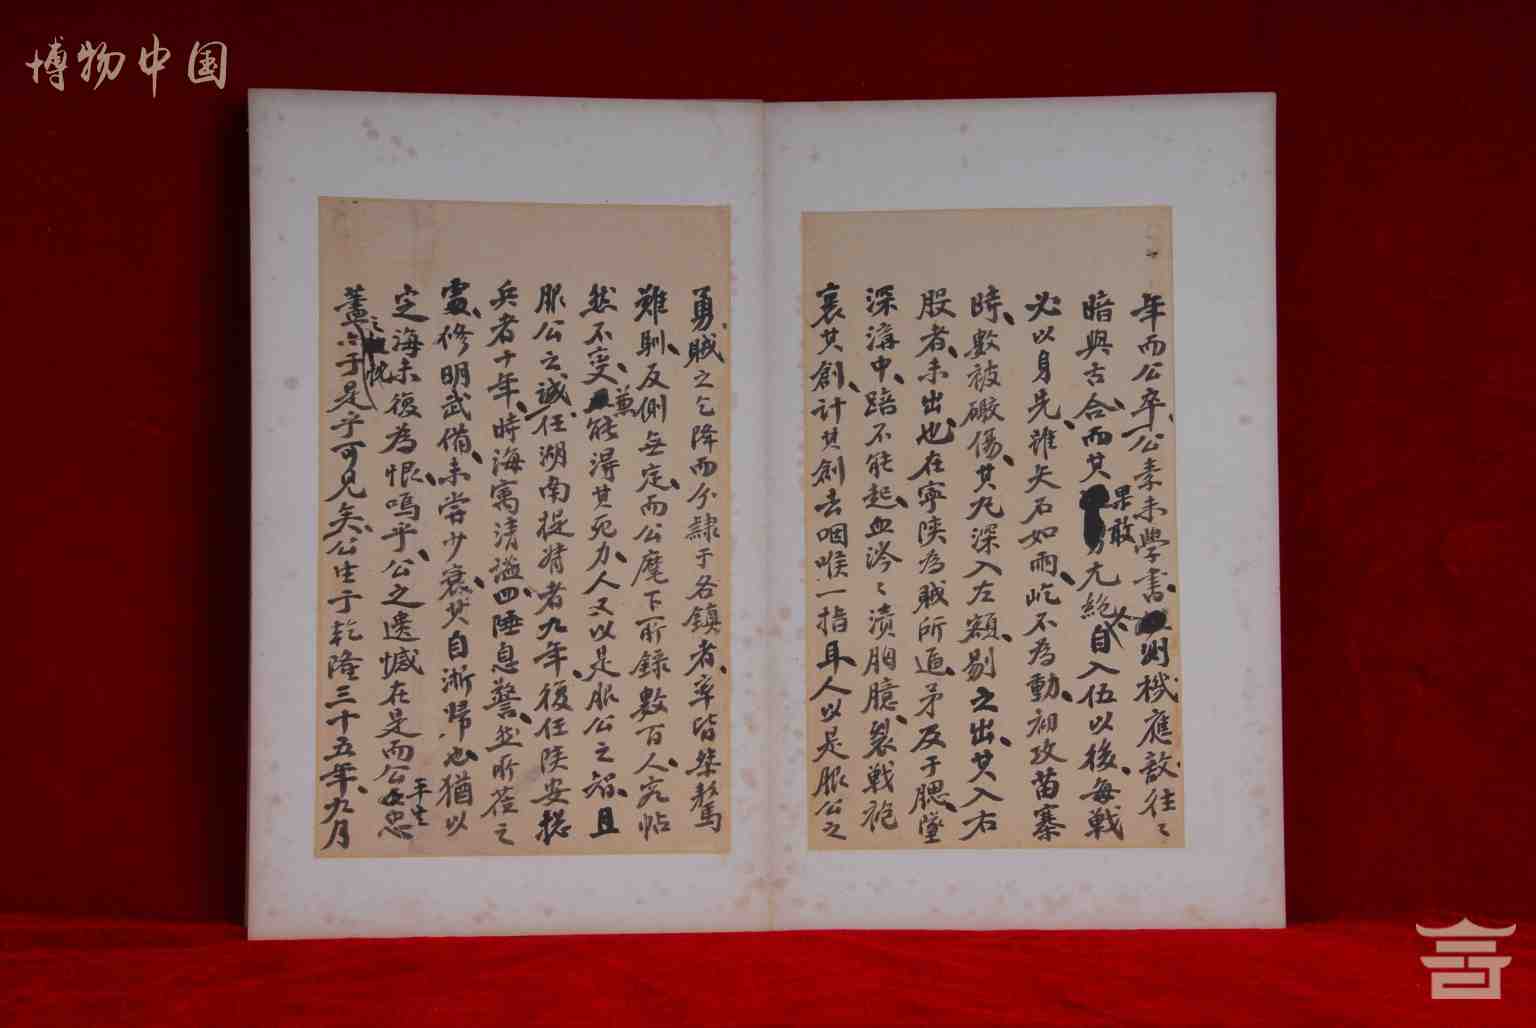 博物中国
年而公卒公素未學書 測機應敵往々
暗與古合而其 果敢 尤絕人自入伍以後每戰
必以身先雖矢石如雨屹不為動初攻苗寨
時數被礮傷其丸深入左額剔之出其入右
股者未出也在寧陝為賊所逼矛及于腮墮
深溝中踣不能起血涔々漬胸臆裂戰袍
裹其創計其創去咽喉一指耳人以是服公之
勇賊之乞降而分隸于各鎮者率皆桀驁
難馴反側無定而公麾下所錄數百人宛帖
然不變兼能得其死力人又以是服公之 且
服公之誠任湖南提督者九年後任陝安總
兵者十年時海寓清謐四陲息警然所莅之
處修明武備未嘗少衰其自浙歸也猶以
定海未復為恨嗚乎公之遺憾在是而公平生忠
藎之忱于是乎可見矣公生于乾隆三十五年九月